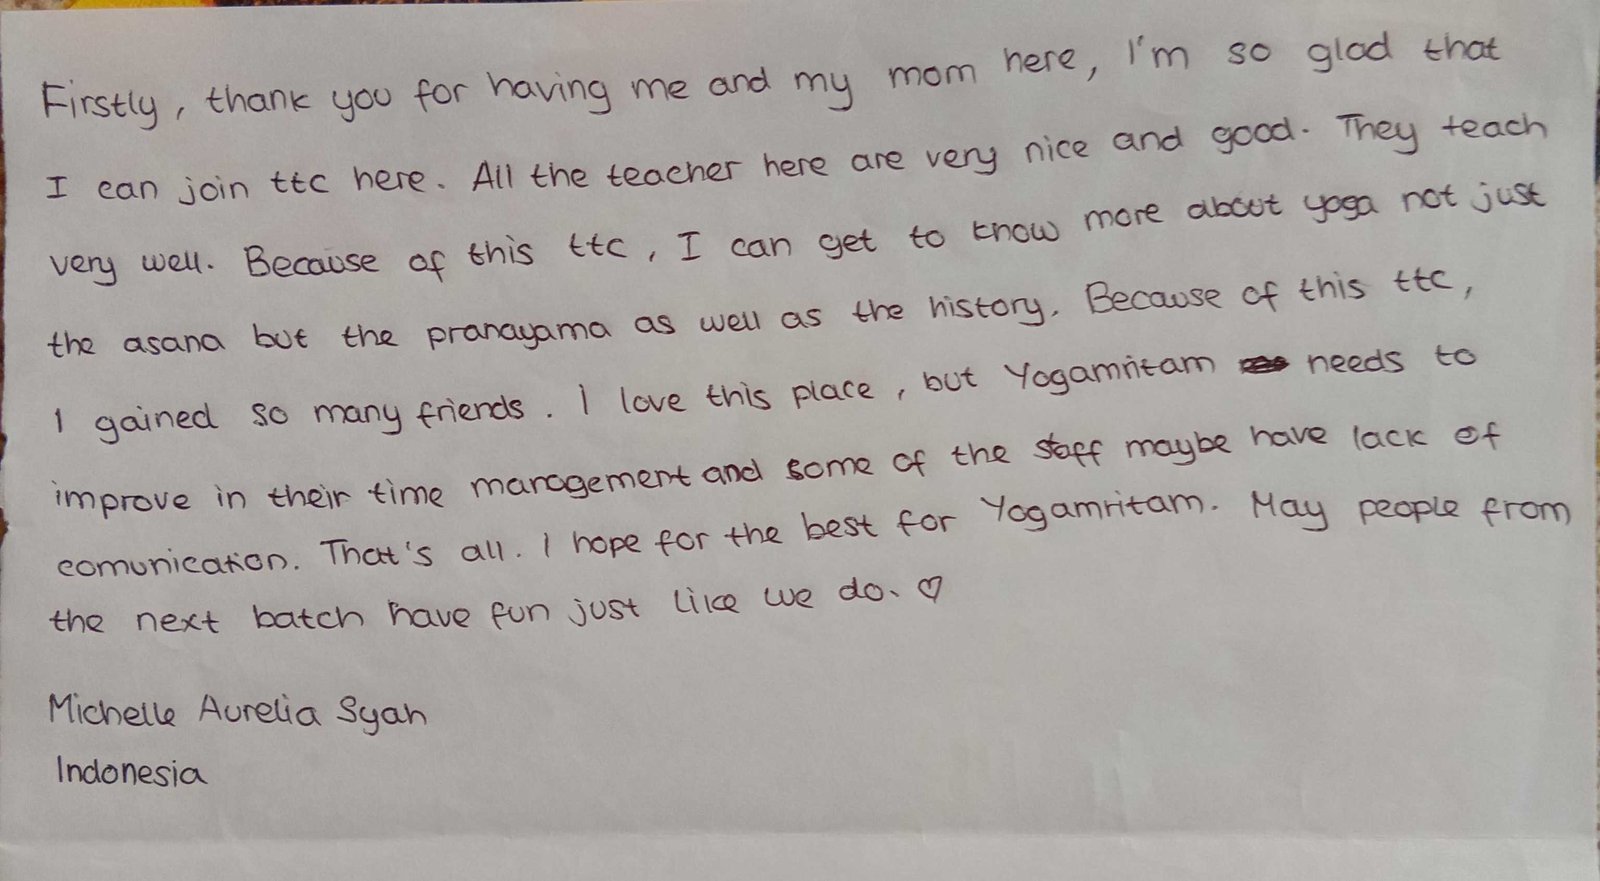 Firstly, thank you for having me and my mom here, I'm so glad that
I can join ttc here. All the teacher here are very nice and good. They teach
very well. Because of this ttc, I can get to know more about yoga not just
the asana but the pranayama as well as the history. Because of this ttc,
I gained so many friends. I love this place, but Yogamritam needs to
improve in their time management and some of the staff maybe have lack of
comunication. That's all. I hope for the best for Yogamritam. May people from
the next batch have fun just like we do. ♡
Michelle Aurelia Syah
Indonesia